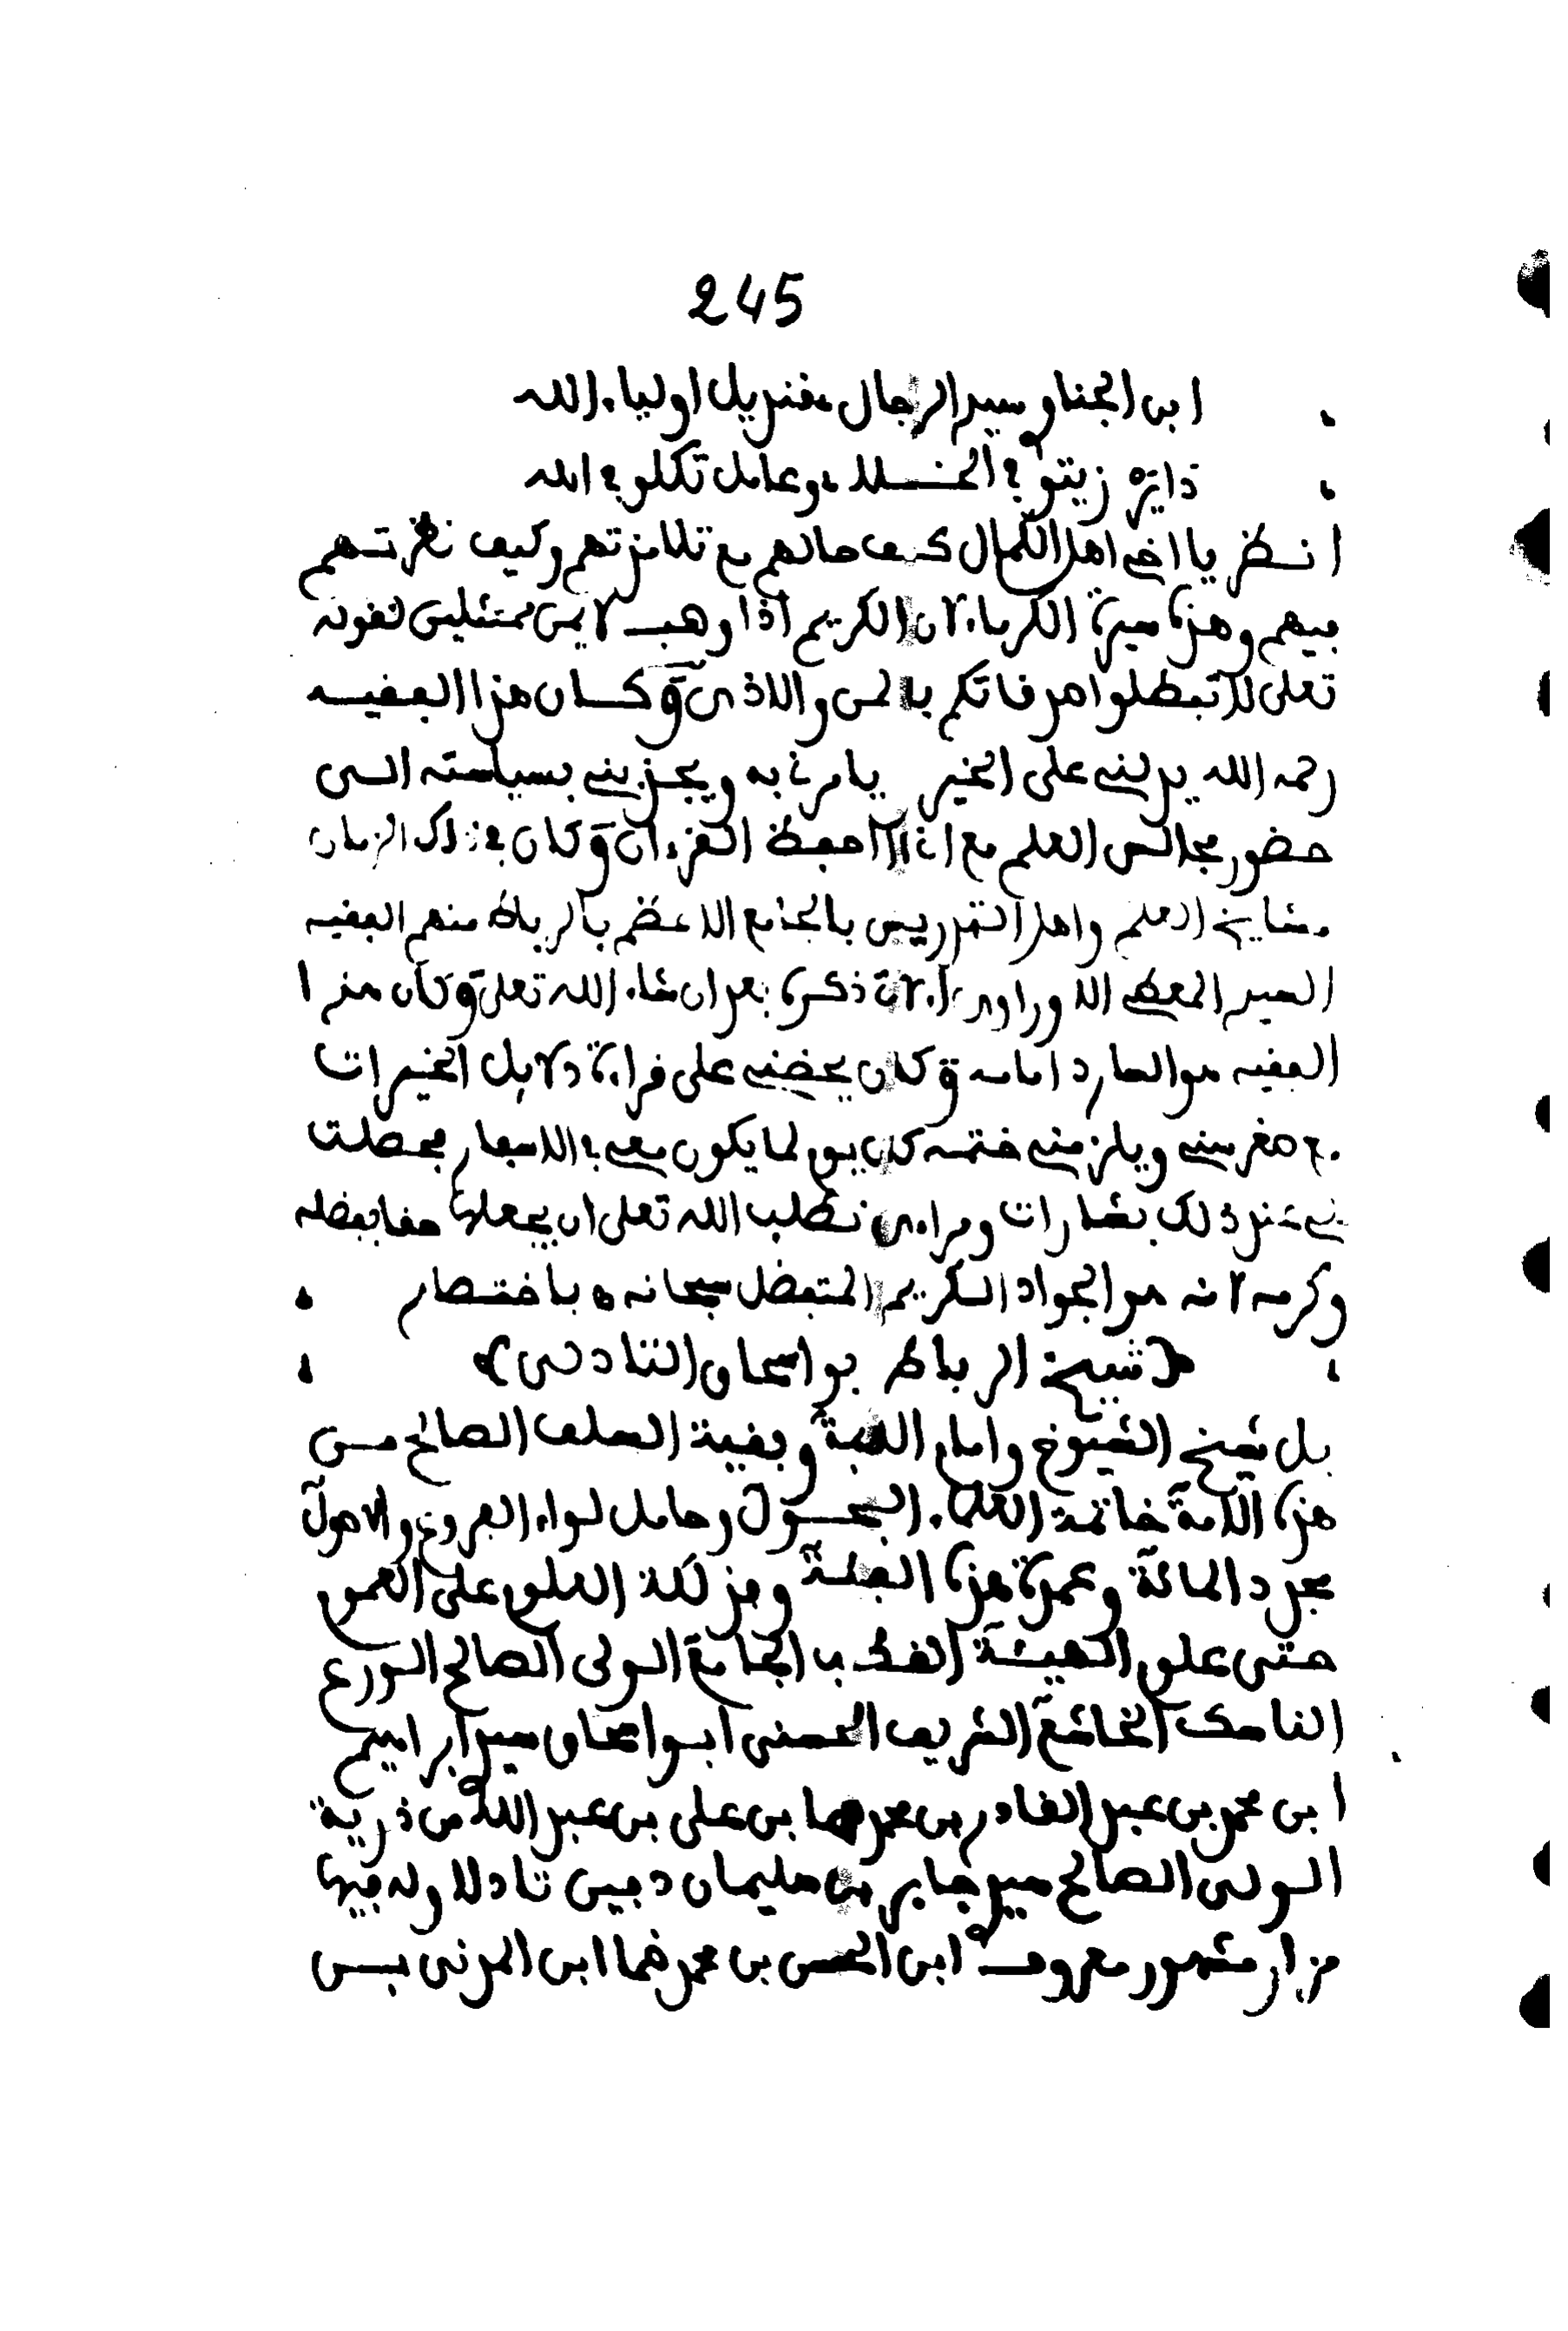 245
ابن الجناوسيد الرجال فنديل اولياء الله
دايره زيتو في الخلد وعامل تكلو في الله
انظر يا اخي اهل الكمال كيف حالهم مع تلامذتهم وكيف نظرتهم
فيهم وهذه سيرة الكرماء لان الكريم اذا وهب لا يمن ممتثلين لقوله
تعلى لا تبطلوا صدقاتكم بالمن والاذى وكان هذا الفقيه
رحمه الله يدلني على الخير يامرني به ويجذبني بسياسته الى
حضور مجالس العلم مع احفظ القرءان وكان في ذلك الزمان
مشايخ العلم واهل التدريس بالجامع الاعظم بالرباط منهم الفقيه
السيد المعطي الاوراوي الاتي ذكره بعد ان شاء الله تعلى وكان هذا
الفقيه هو السارد امامه وكان يحضني على قراءة دلايل الخيرات
في صغر سني ويلزمني ختمه كل يوم لما يكون معي في الاسفار فحصلت
لي عند ذلك بشارات ومراءى نطلب الله تعلى ان يجعلها حقا بفضله
وكرمه لانه هو الجواد الكريم المتفضل سبحانه ه باختصار
{شيخ الرباط بواسحاق التادلى}
بل شيخ الشيوخ وامام وبقية السلف الصالح من
هذه الامة خاتمة العلماء الفحول وحامل لواء الفروع والاصول
مجرد المائة وعمدة هذه الملة وفذلكة العلوم على العموم
حتى علوم الهيئة القطب الجامع الولى الصالح الورع
الناسك الخاشع الشريف الحسنى ابو اسحاق سيد ابراهيم
ابن محمد بن عبد القادر بن محمد بن على بن عبد الله من ذرية
الولى الصالح سيد جابر بن سليمان دفين تادلا وله فيها
مزار مشهور معروف ابن الحسن بن محمد ابن المدنى بن